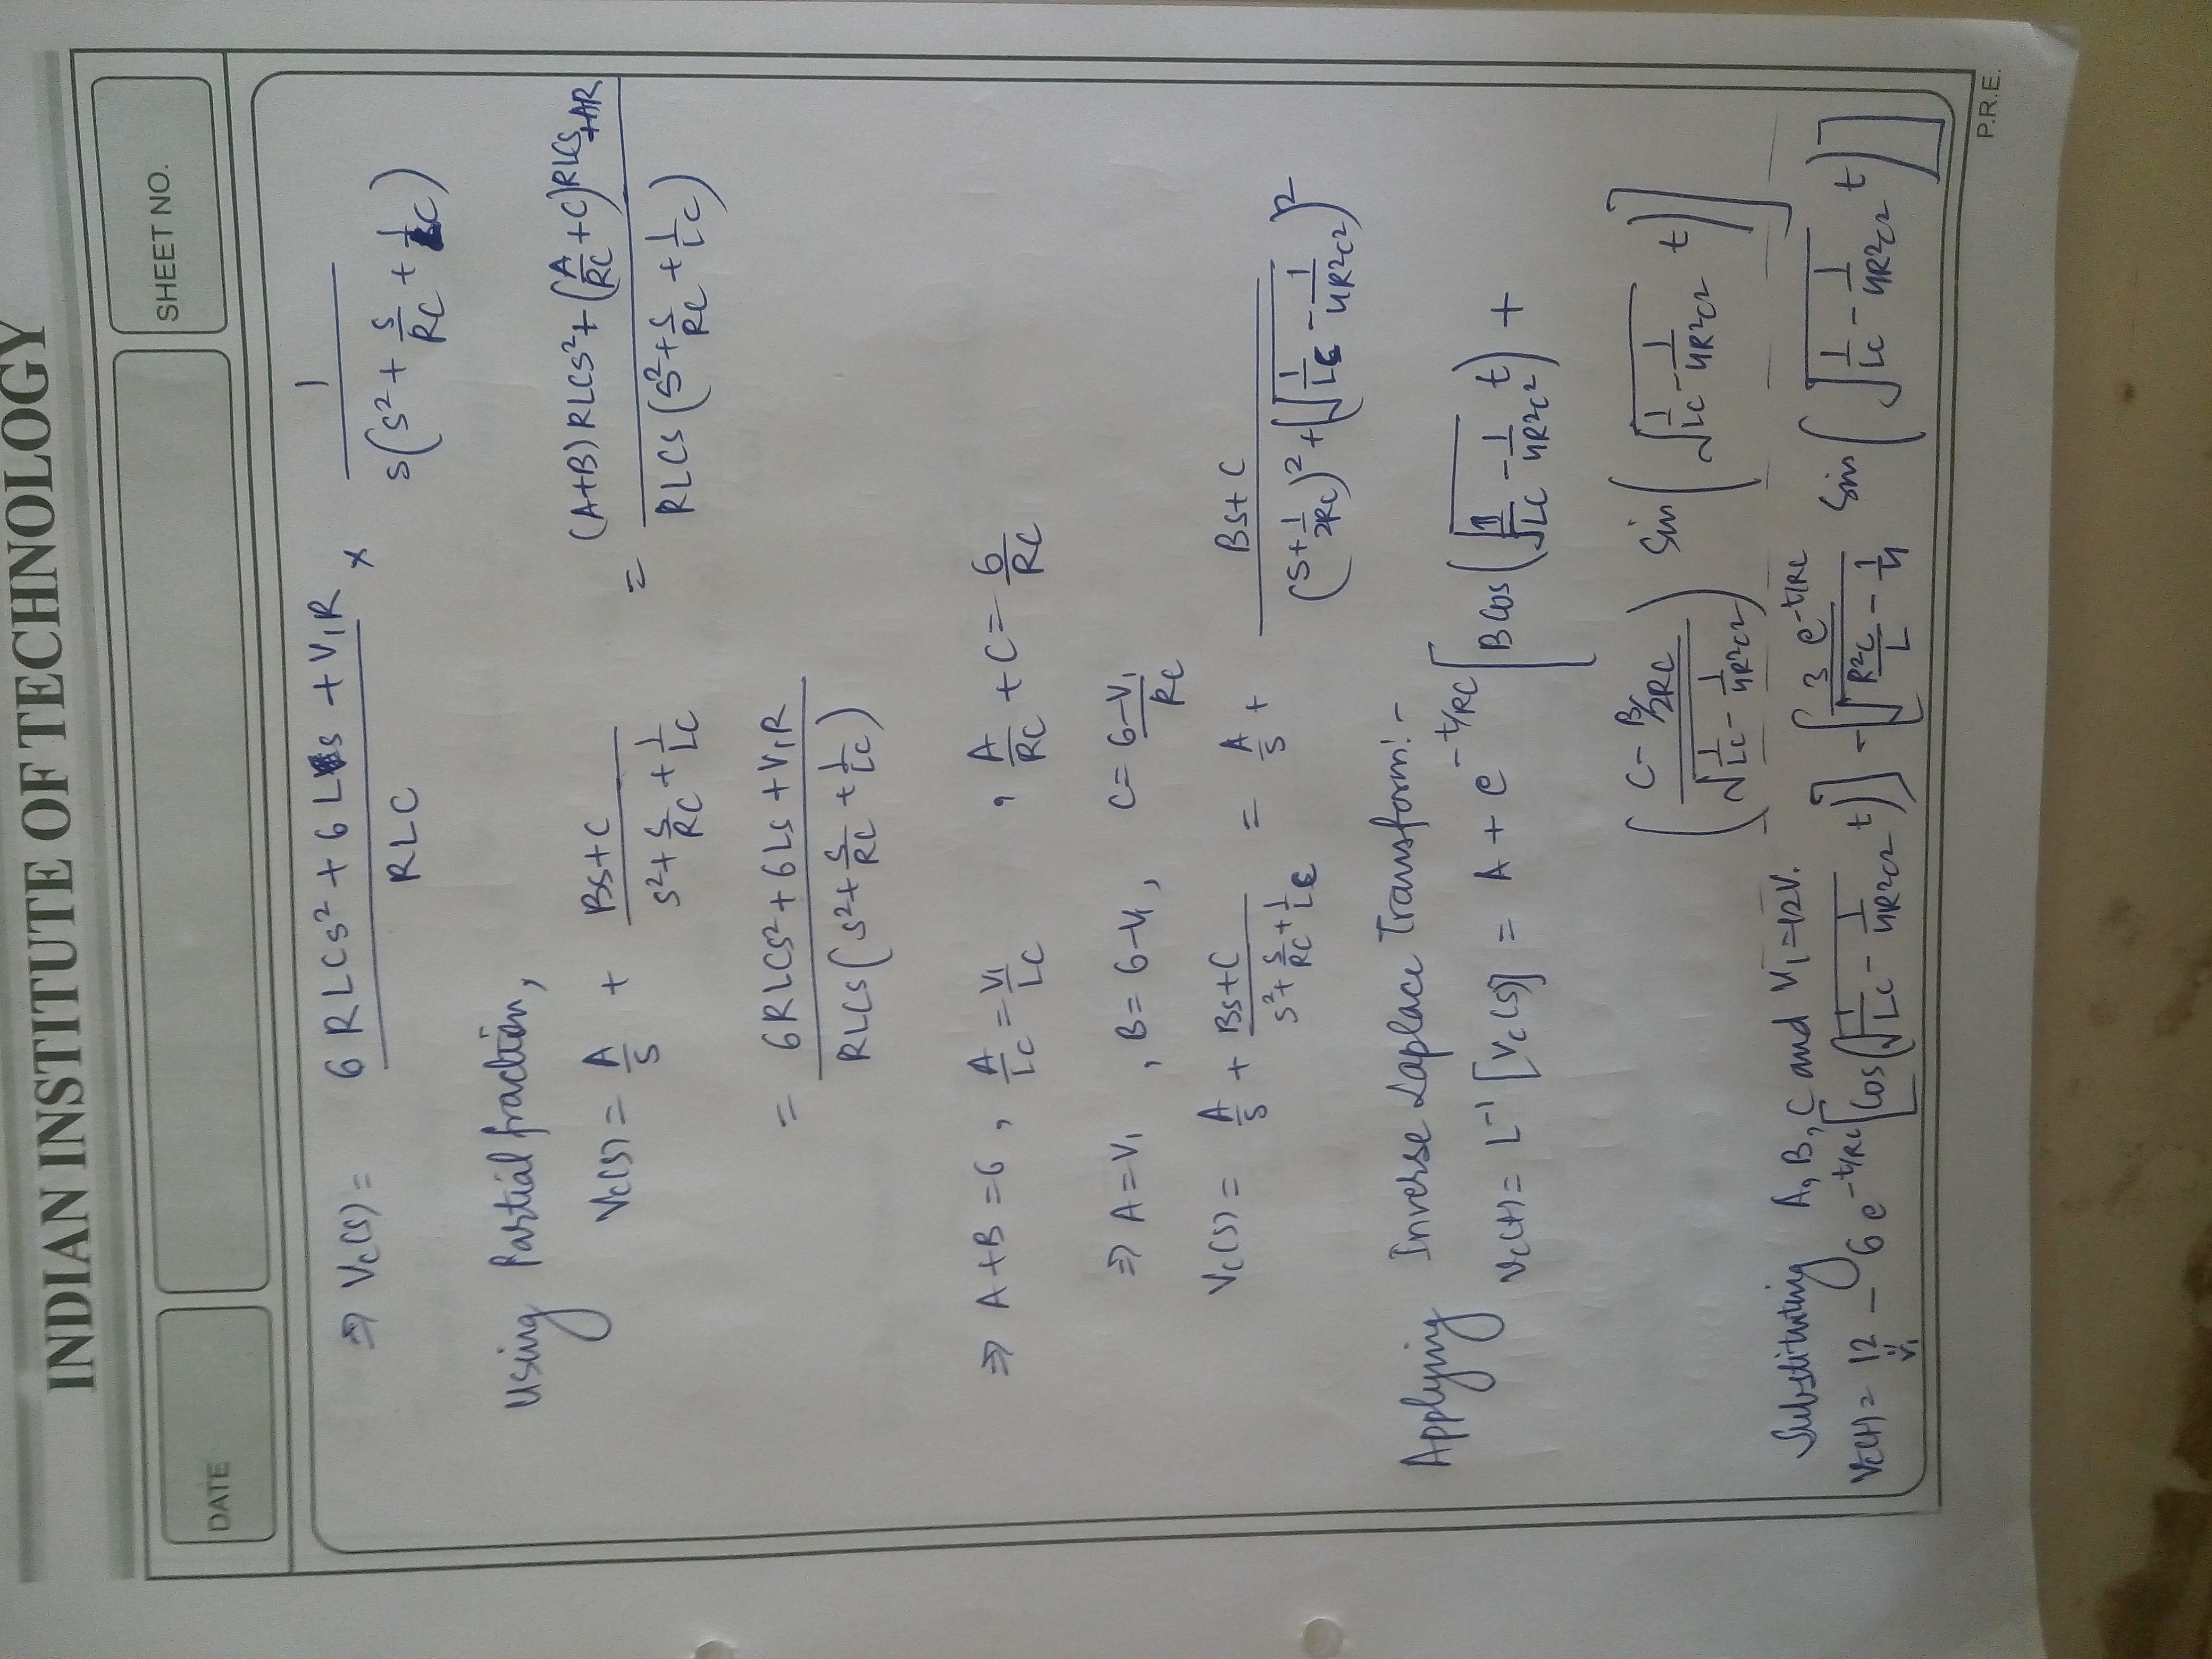 INDIAN INSTITUTE OF TECHNOLOGY
DATE
SHEET NO.
⇒ Vc(s) = (6RLCs² + 6Ls + V₁R)/(RLC) × 1/(s(s² + s/RC + 1/LC))
Using Partial fraction,
Vc(s) = A/s + (Bs+C)/(s² + s/RC + 1/LC) = ((A+B)RLCs² + (A/RC + C)RLCs + AR)/(RLCs(s² + s/RC + 1/LC))
= (6RLCs² + 6Ls + V₁R)/(RLCs(s² + s/RC + 1/LC))
⇒ A+B = 6, A/LC = V₁/LC, A/RC + C = 6/RC
⇒ A = V₁, B = 6-V₁, C = (6-V₁)/RC
Vc(s) = A/s + (Bs+C)/(s² + s/RC + 1/LC) = A/s + (Bs+C)/((s + 1/2RC)² + (√(1/LC - 1/4R²C²))²)
Applying Inverse Laplace Transform:-
vc(t) = L⁻¹[Vc(s)] = A + e^(-t/RC) [B cos(√(1/LC - 1/4R²C²) t) +
((C - B/2RC)/√(1/LC - 1/4R²C²)) sin(√(1/LC - 1/4R²C²) t)]
Substituting A, B, C and V₁=12V.
Vc(t) = 12 - 6e^(-t/RC) [cos(√(1/LC - 1/4R²C²) t)] - [3e^(-t/RC)/√(R²C/L - 1/4) sin(√(1/LC - 1/4R²C²) t)]
V₁
P.R.E.